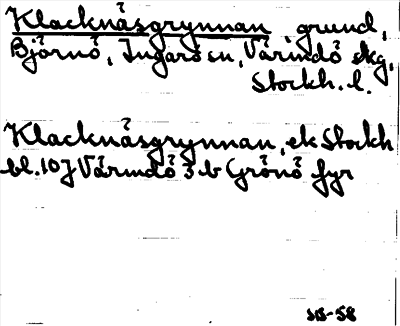 Klacknåsgrynnan grund,
Björnö, Ingarö sn, Värmdö skg,
Stockh. l.
Klacknåsgrynnan, ek Stockh
bl. 10J Värmdö 3 b Grönö fyr
58